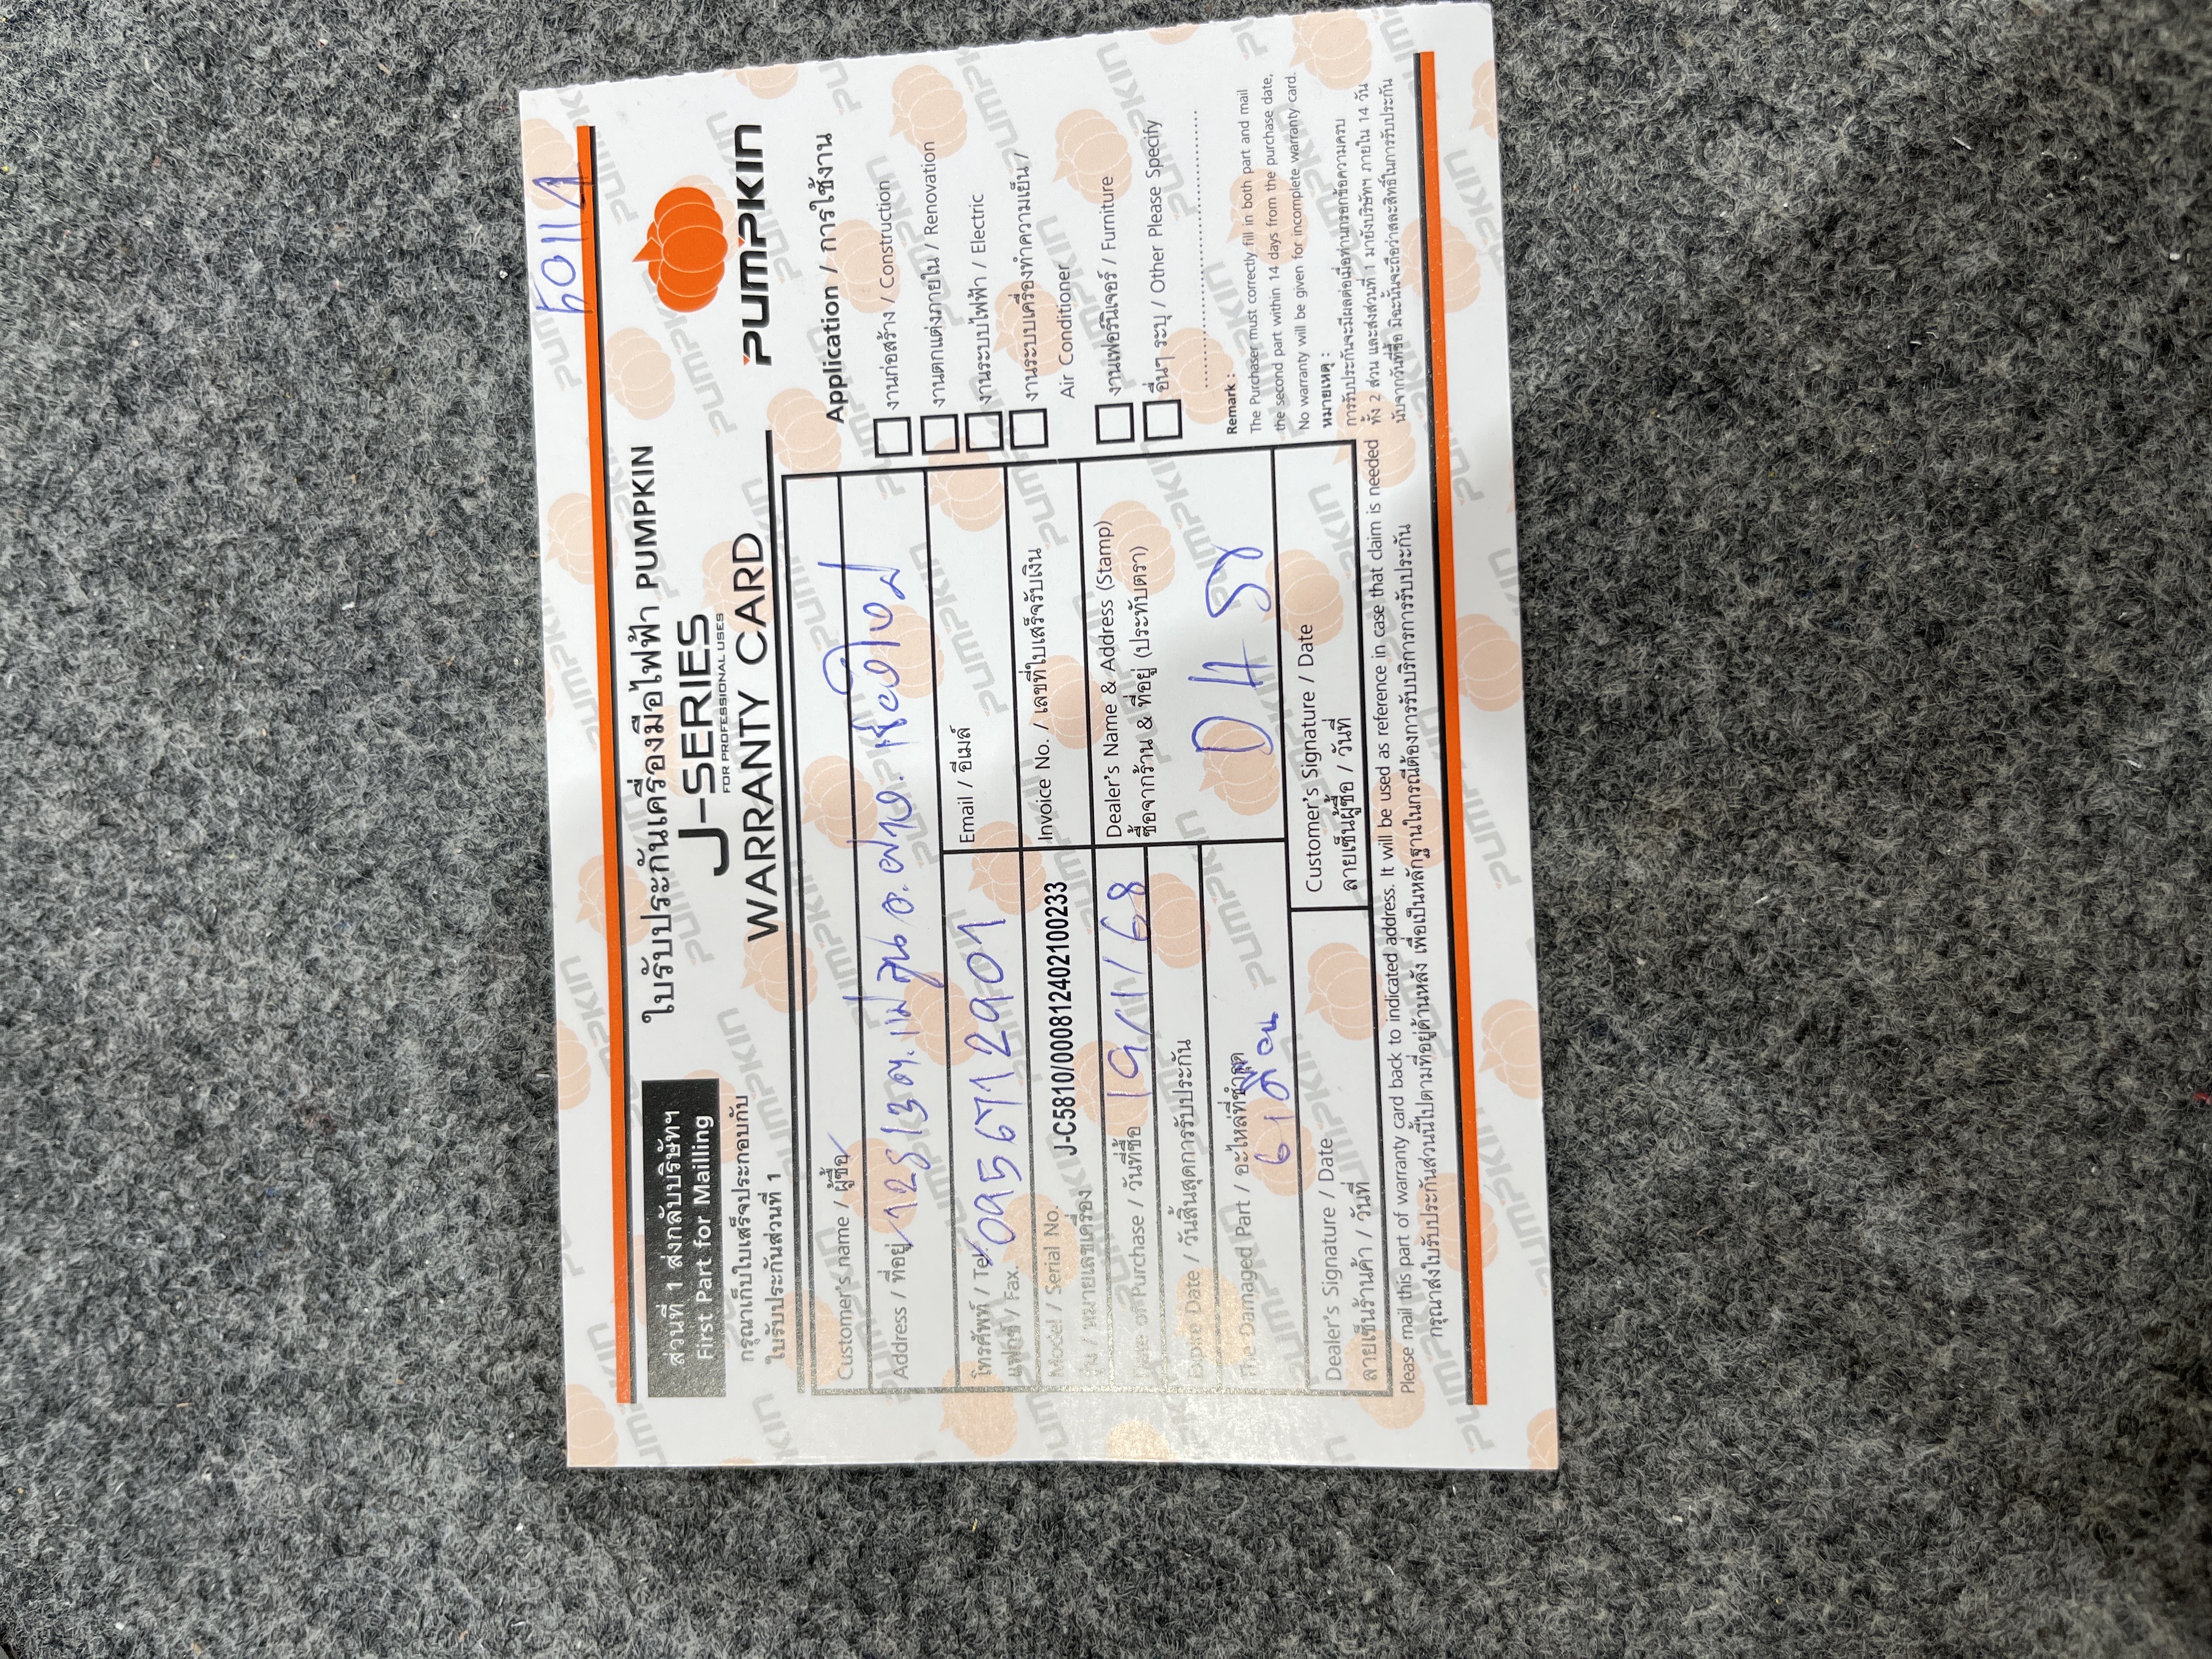 50117
ใบรับประกันเครื่องมือไฟฟ้า PUMPKIN
J-SERIES
FOR PROFESSIONAL USES
WARRANTY CARD
PUMPKIN
ส่วนที่ 1 ส่งกลับบริษัทฯ
First Part for Mailling
กรุณาเก็บใบเสร็จประกอบกับ
ใบรับประกันส่วนที่ 1
Customer's name / ผู้ซื้อ
Address / ที่อยู่ 128/3 ต.แม่สูน อ.ฝาง จ.เชียงใหม่
โทรศัพท์ / Tel. 0956712901
แฟกซ์ / Fax.
Email / อีเมล์
Model / Serial No. J-C5810/000812402100233
รุ่น / หมายเลขเครื่อง
Invoice No. / เลขที่ใบเสร็จรับเงิน
Date of Purchase / วันที่ซื้อ 19/11/68
Expire Date / วันสิ้นสุดการรับประกัน
Dealer's Name & Address (Stamp)
ซื้อจากร้าน & ที่อยู่ (ประทับตรา)
D H
The Damaged Part / อะไหล่ที่ชำรุด
6 เดือน
Dealer's Signature / Date
ลายเซ็นร้านค้า / วันที่
Customer's Signature / Date
ลายเซ็นผู้ซื้อ / วันที่
Application / การใช้งาน
งานก่อสร้าง / Construction
งานตกแต่งภายใน / Renovation
งานระบบไฟฟ้า / Electric
งานระบบเครื่องทำความเย็น /
Air Conditioner
งานเฟอร์นิเจอร์ / Furniture
อื่นๆ ระบุ / Other Please Specify
Remark :
The Purchaser must correctly fill in both part and mail
the second part within 14 days from the purchase date,
No warranty will be given for incomplete warranty card.
หมายเหตุ :
การรับประกันจะมีผลต่อเมื่อท่านกรอกข้อความครบ
ทั้ง 2 ส่วน และส่งส่วนที่ 1 มายังบริษัทฯ ภายใน 14 วัน
นับจากวันที่ซื้อ มิฉะนั้นจะถือว่าสละสิทธิ์ในการรับประกัน
Please mail this part of warranty card back to indicated address. It will be used as reference in case that claim is needed
กรุณาส่งใบรับประกันส่วนนี้ไปตามที่อยู่ด้านหลัง เพื่อเป็นหลักฐานในกรณีต้องการรับบริการการรับประกัน